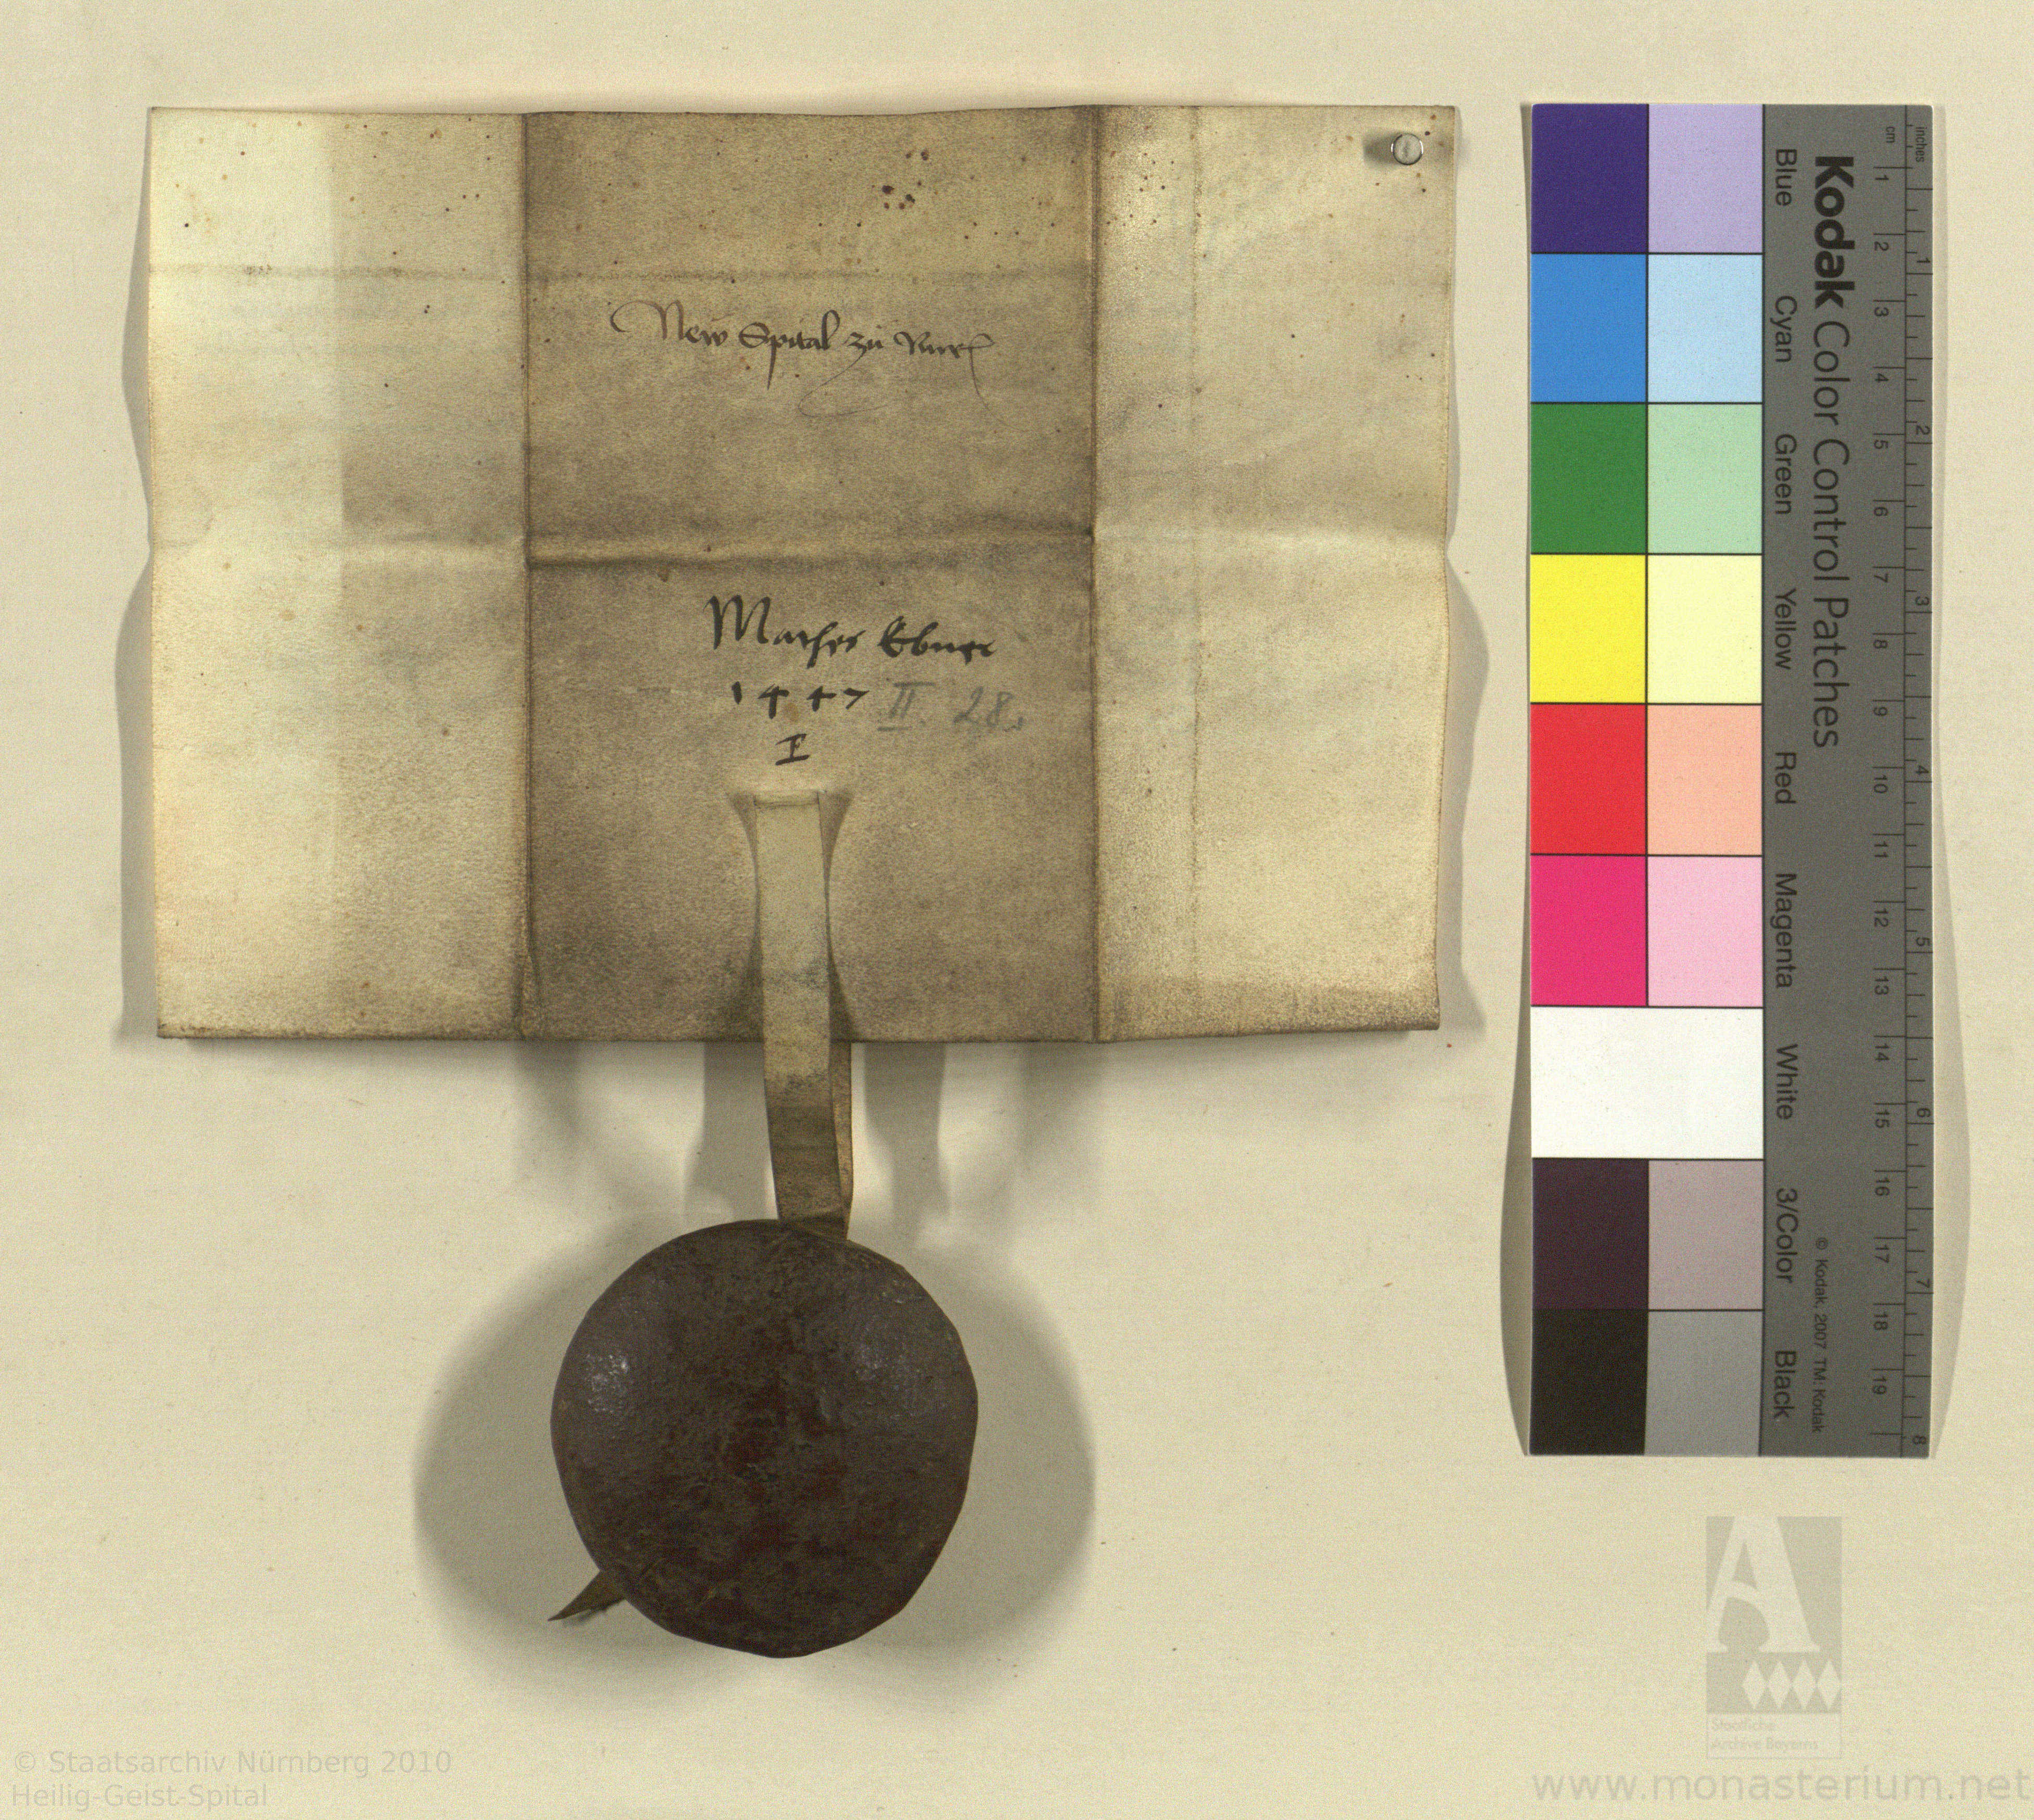 New Spital zu Nur
Mathes Ebner
1447 II. 28.
I
Kodak Color Control Patches
Blue Cyan Green Yellow Red Magenta White 3/Color Black
© Kodak, 2007 TM: Kodak
cm 1 2 3 4 5 6 7 8 9 10 11 12 13 14 15 16 17 18 19
inches 1 2 3 4 5 6 7 8
A
Staatliche
Archive Bayerns
© Staatsarchiv Nürnberg 2010
Heilig-Geist-Spital
www.monasterium.net